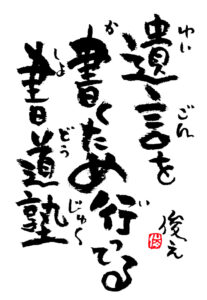 ゆいごん
遺言を
か い
書くため行ってる
しょどうじゅく
書道塾